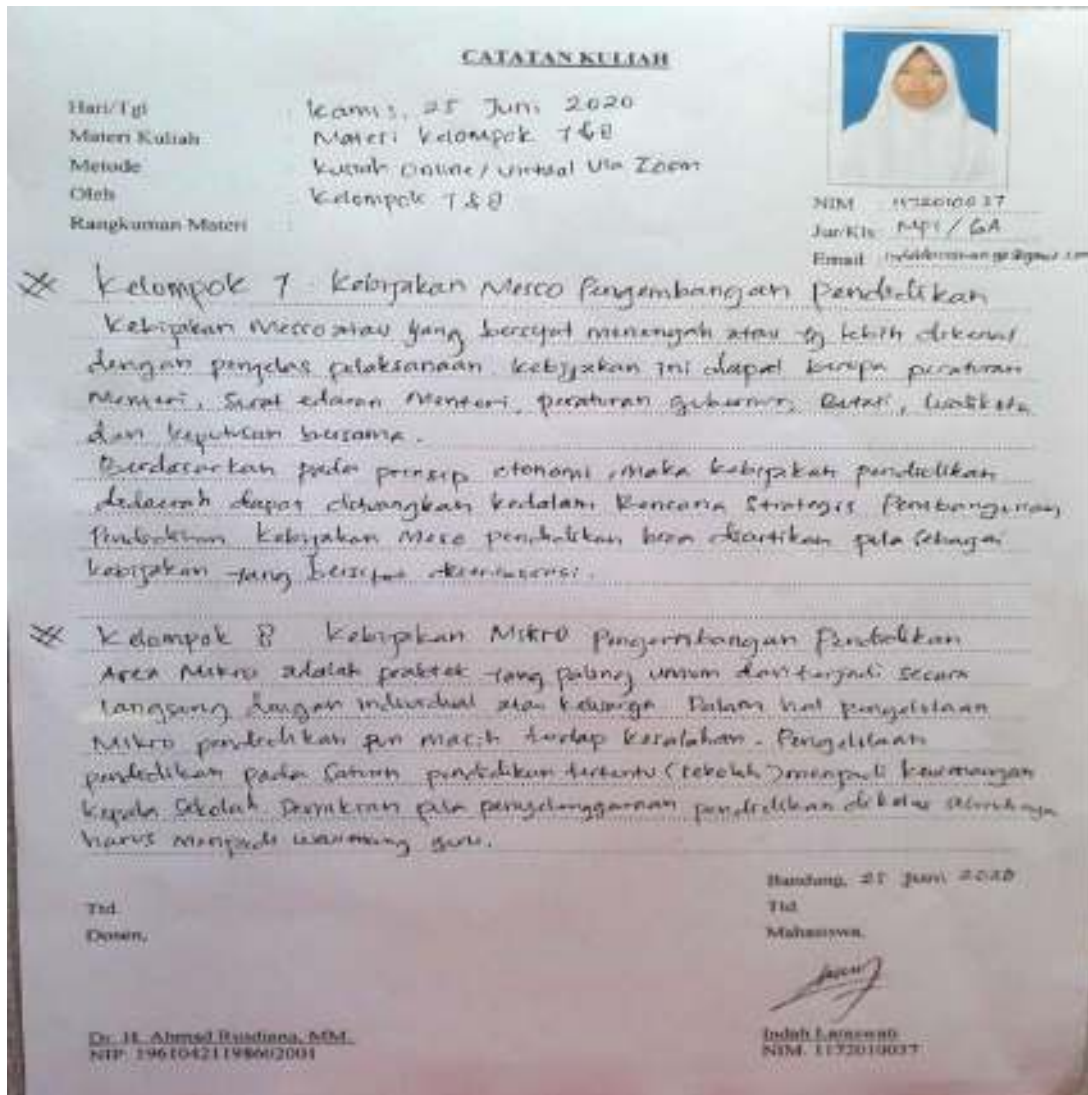 CATATAN KULIAH
Hari/Tgl : Kamis, 25 Juni 2020
Materi Kuliah : Materi Kelompok 7 & 8
Metode : Kuliah Online / Virtual Via Zoom
Oleh : Kelompok 7 & 8
Rangkuman Materi :
NIM : 1172010037
Jur/Kls : MPI / 6A
Email :
Kelompok 7 Kebijakan Messo Pengembangan Pendidikan
Kebijakan Messo atau yang bersifat menengah atau yg lebih dikenal
dengan penjelas pelaksanaan kebijakan ini dapat berupa peraturan
Menteri, Surat edaran Menteri, peraturan gubernur, Bupati, Walikota
dan keputusan bersama.
Berdasarkan pada prinsip otonomi, maka kebijakan pendidikan
didaerah dapat dituangkan kedalam Rencana Strategis Pembangunan
Pendidikan Kebijakan Meso pendidikan bisa diartikan pula sebagai
kebijakan yang bersifat
Kelompok 8 Kebijakan Mikro Pengembangan Pendidikan
Area Mikro adalah praktek yang paling umum dan terjadi secara
langsung dengan individual atau keluarga Dalam hal pengelolaan
Mikro pendidikan pun masih terdap kesalahan. Pengelolaan
pendidikan pada Satuan pendidikan tertentu (sekolah) menjadi kewenangan
kepala Sekolah Demikian pula penyelenggaraan pendidikan dikelas seluruhnya
harus menjadi wewenang guru.
Bandung, 25 Juni 2020
Ttd. Ttd.
Dosen, Mahasiswa,
Dr. H. Ahmad Rusdiana, MM. Indah Laraswati
NIP. 19610421198602001 NIM. 1172010037